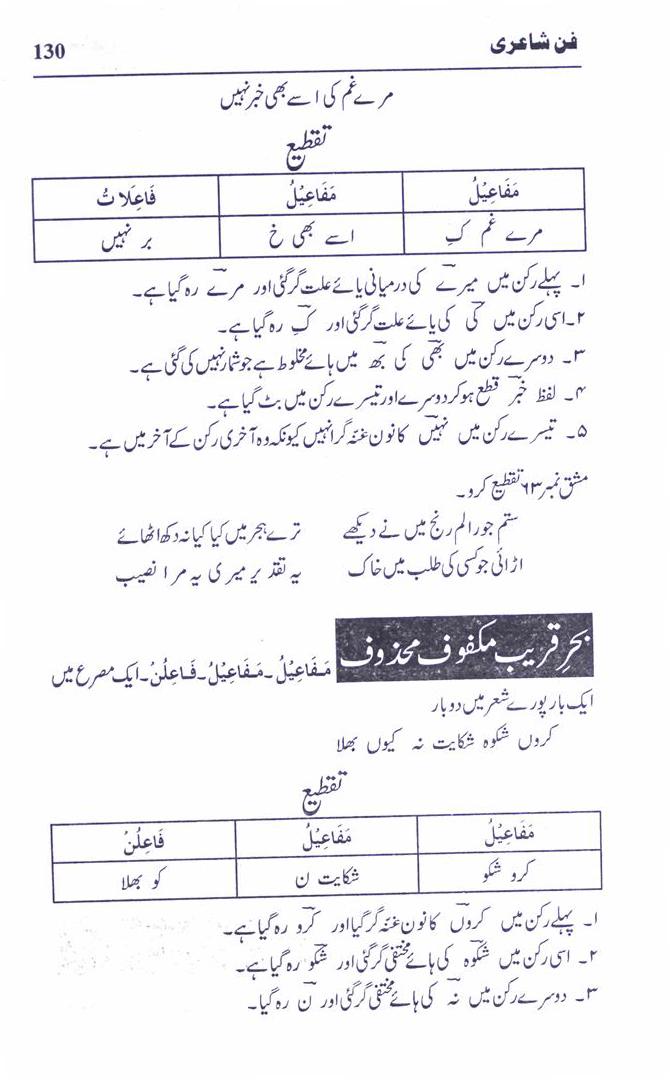 فن شاعری 130
مرے غم کی اسے بھی خبر نہیں
تقطیع
مَفَاعِیْلُ مَفَاعِیْلُ فَاعِلَاتُ
مرے غم کِ اسے بھی خ بر نہیں
۱۔ پہلے رکن میں میرے کی درمیانی یائے علت گر گئی اور مرے رہ گیا ہے۔
۲۔ اسی رکن میں کی کی یائے علت گر گئی اور کِ رہ گیا ہے۔
۳۔ دوسرے رکن میں بھی کی بھ میں ہائے مخلوط ہے جو شمار نہیں کی گئی ہے۔
۴۔ لفظ خبر قطع ہو کر دوسرے اور تیسرے رکن میں بٹ گیا ہے۔
۵۔ تیسرے رکن میں نہیں کا نون غنہ گرا نہیں کیونکہ وہ آخری رکن کے آخر میں ہے۔
مشق نمبر ۶۳ تقطیع کرو۔
ستم جور الم رنج میں نے دیکھے ترے ہجر میں کیا کیا نہ دکھ اٹھائے
اڑائی جو کسی کی طلب میں خاک یہ تقدیر میری یہ مرا نصیب
بحرِ قریب مکفوف محذوف مَفَاعِیْلُ۔ مَفَاعِیْلُ۔ فَاعِلُنْ۔ ایک مصرع میں
ایک بار پورے شعر میں دو بار
کروں شکوہ شکایت نہ کیوں بھلا
تقطیع
مَفَاعِیْلُ مَفَاعِیْلُ فَاعِلُنْ
کرو شکو شکایت ن کو بھلا
۱۔ پہلے رکن میں کروں کا نون غنہ گر گیا اور کرو رہ گیا ہے۔
۲۔ اسی رکن میں شکوہ کی ہائے مختفی گر گئی اور شکو رہ گیا ہے۔
۳۔ دوسرے رکن میں نہ کی ہائے مختفی گر گئی اور ن رہ گیا۔